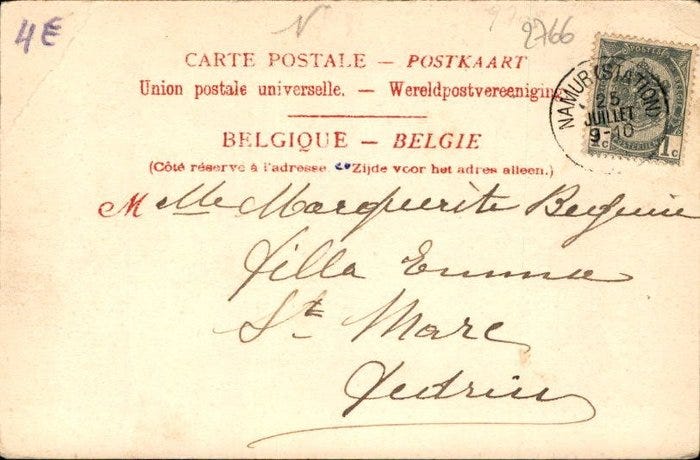 4E
N
2766
CARTE POSTALE — POSTKAART
Union postale universelle. — Wereldpostvereeniging
BELGIQUE — BELGIE
(Côté réservé à l'adresse. Zijde voor het adres alleen.)
NAMUR (STATION)
25
JUILLET
9-10
1c 1c
Melle Marguerite Beguin
Villa Emma
St Marc
Vedrin